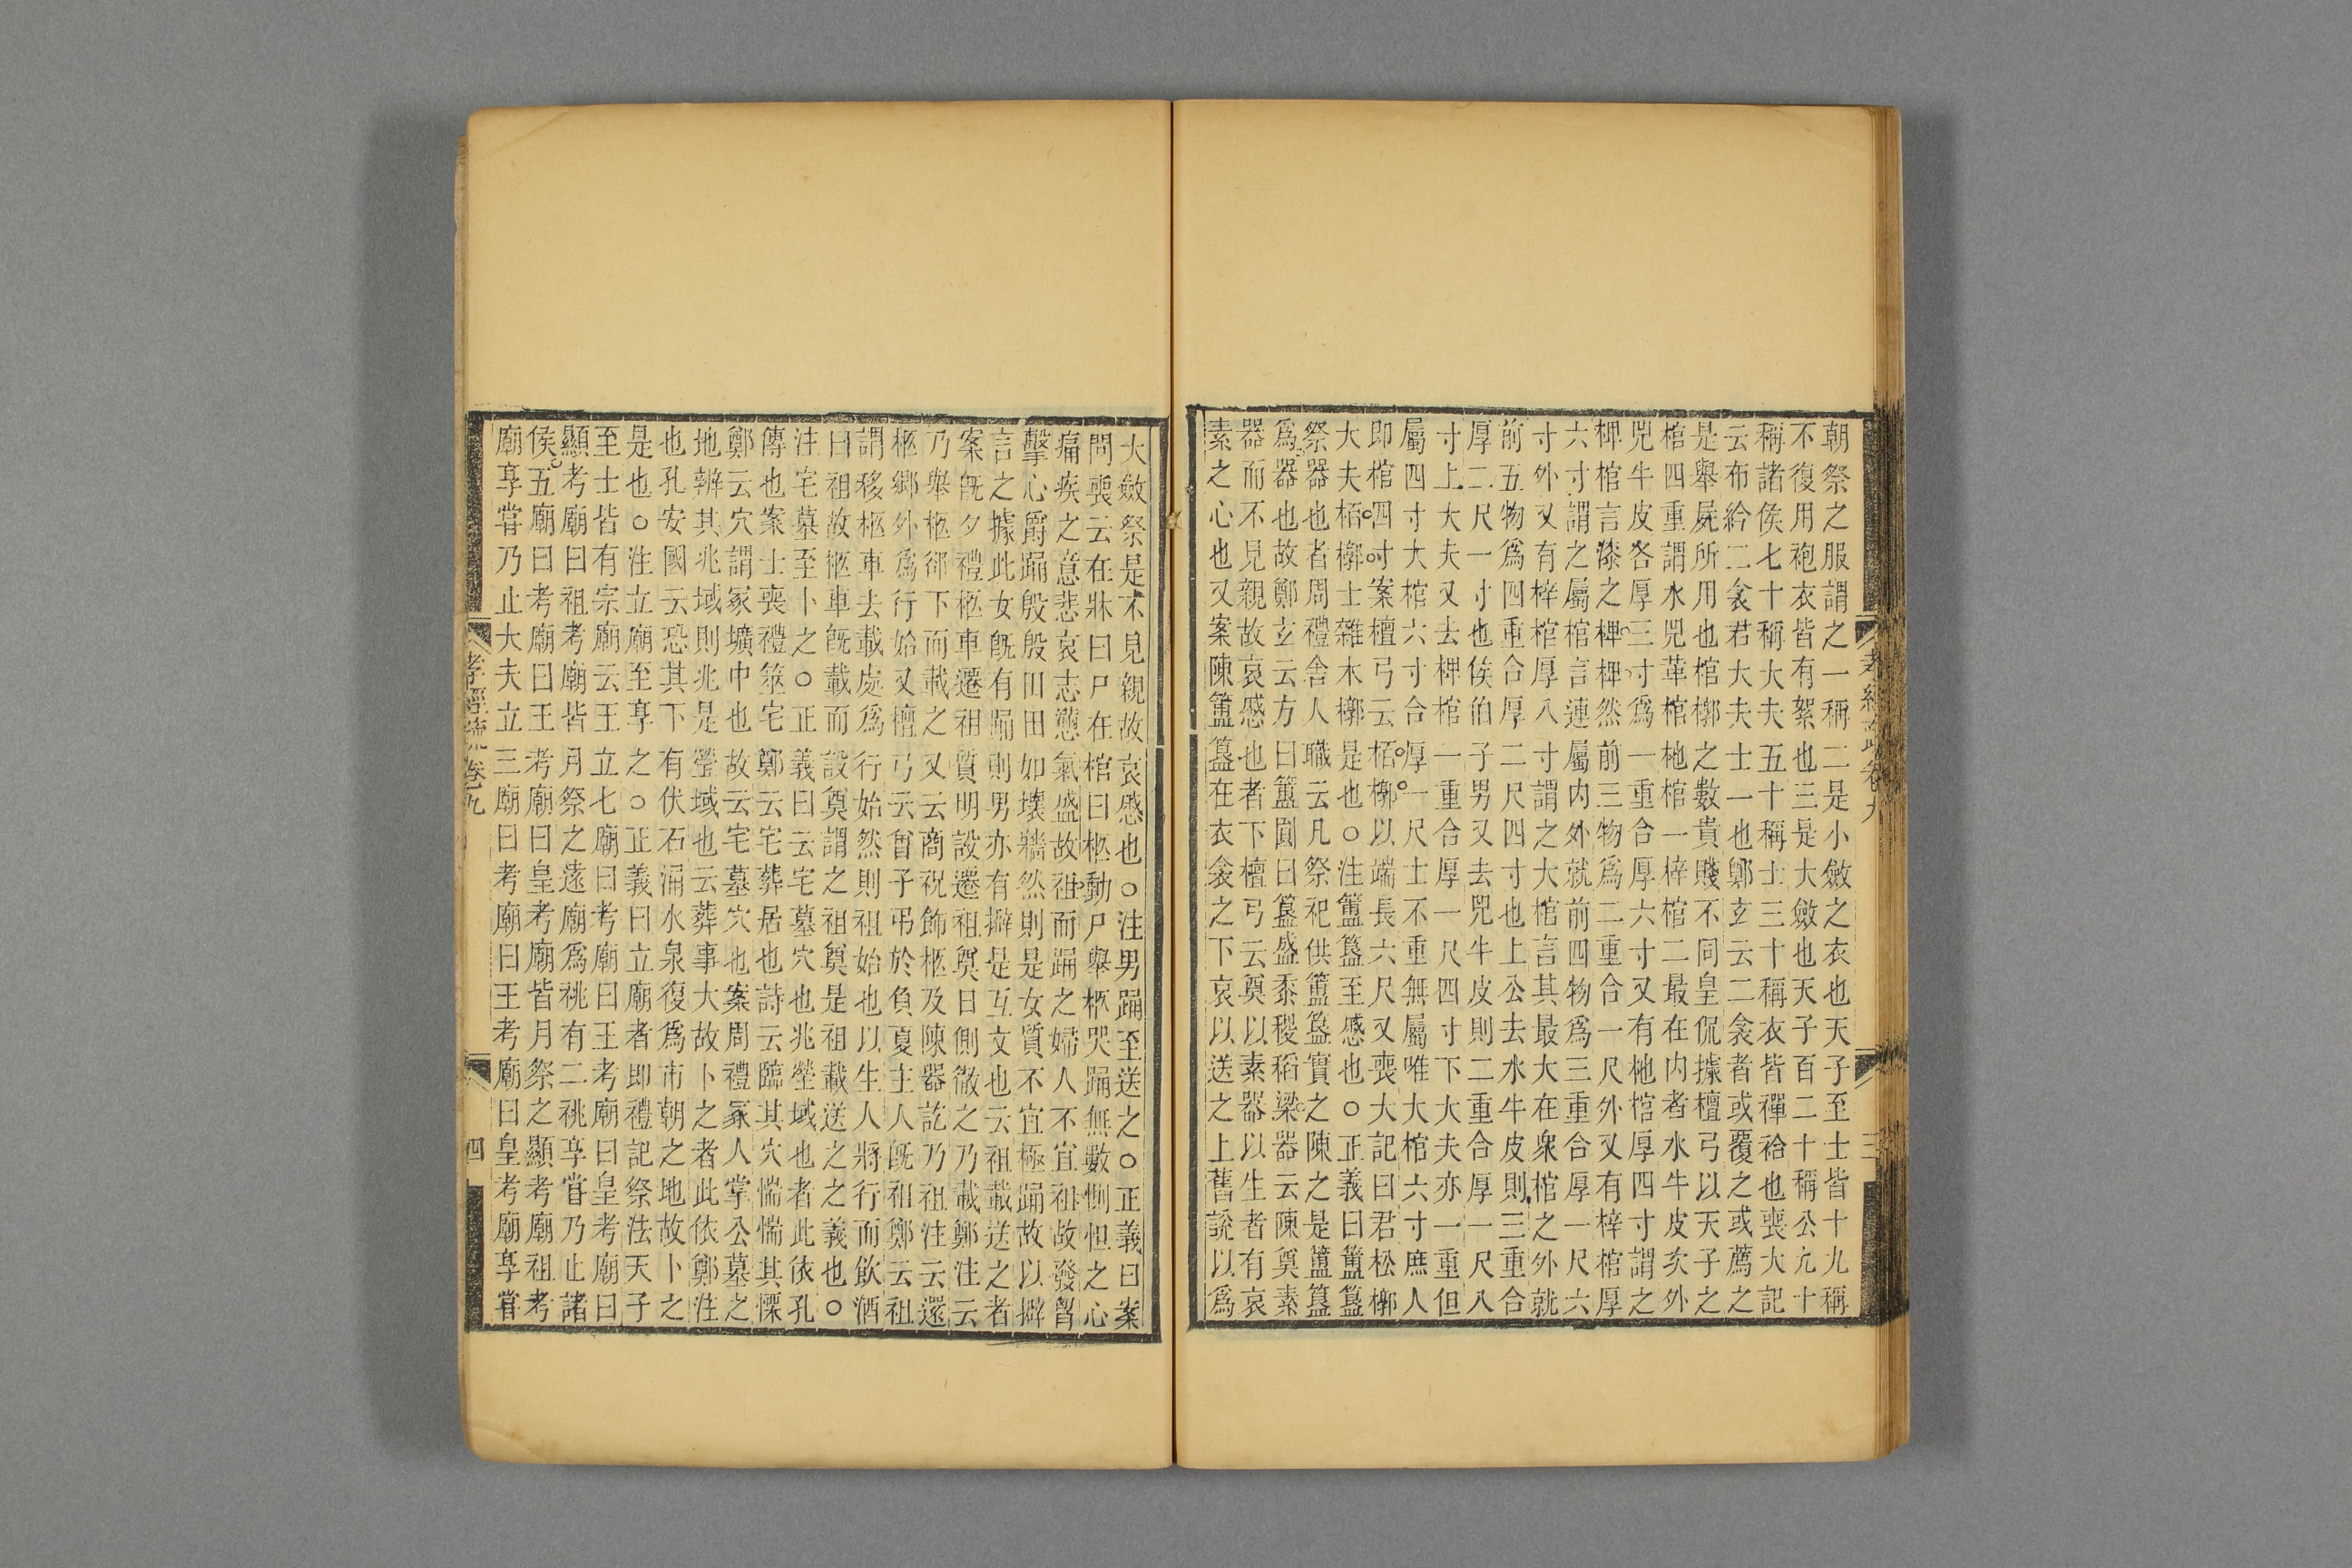 朝祭之服謂之一稱二是小斂之衣也天子至士皆十九稱
不復用袍衣皆有絮也三是大斂也天子百二十稱公九十
稱諸侯七十稱大夫五十稱士三十稱衣皆襌袷也喪大記
云布紟二衾君大夫士一也鄭玄云二衾者或覆之或薦之
是舉屍所用也棺槨之數貴賤不同皇侃據檀弓以天子之
棺四重謂水兕革棺杝棺一梓棺二最在内者水牛皮次外
兕牛皮各厚三寸爲一重合厚六寸又有杝棺厚四寸謂之
椑棺言漆之椑椑然前三物爲二重合一尺外又有梓棺厚
六寸謂之屬棺言連屬内外就前四物爲三重合厚一尺六
寸外又有梓棺厚八寸謂之大棺言其最大在衆棺之外就
前五物爲四重合厚二尺四寸也上公去水牛皮則三重合
厚二尺一寸也侯伯子男又去兕牛皮則二重合厚一尺八
寸上大夫又去椑棺一重合厚一尺四寸下大夫亦一重但
屬四寸大棺六寸合厚一尺士不重無屬唯大棺六寸庶人
即棺四寸案檀弓云栢槨以端長六尺又喪大記曰君松槨
大夫栢槨士雜木槨是也○注簠簋至慼也○正義曰簠簋
祭器也者周禮舍人職云凡祭祀供簠簋實之陳之是簠簋
爲器也故鄭玄云方曰簠圓曰簋盛黍稷稻梁器云陳奠素
器而不見親故哀慼也者下檀弓云奠以素器以生者有哀
素之心也又案陳簠簋在衣衾之下哀以送之上舊說以爲
大斂祭是不見親故哀慼也○注男踊至送之○正義曰案
問喪云在牀曰尸在棺曰柩動尸舉柩哭踊無數惻怛之心
痛疾之意悲哀志懣氣盛故袒而踊之婦人不宜袒故發胷
擊心爵踊殷殷田田如壞牆然則是女質不宜極踊故以擗
言之據此女既有踊則男亦有擗是互文也云祖載送之者
案既夕禮柩車遷祖質明設遷祖奠日側徹之乃載鄭注云
乃舉柩郤下而載之又云商祝飾柩及陳器訖乃祖注云還
柩鄉外爲行始又檀弓云曾子弔於負夏主人既祖鄭云祖
謂移柩車去載處爲行始然則祖始也以生人將行而飲酒
曰祖故柩車既載而設奠謂之祖奠是祖載送之之義也○
注宅墓至卜之○正義曰云宅墓穴也兆塋域也者此依孔
傳也案士喪禮筮宅鄭云宅葬居也詩云臨其穴惴惴其慄
鄭云穴謂冢壙中也故云宅墓穴也案周禮冢人掌公墓之
地辨其兆域則兆是塋域也云葬事大故卜之者此依鄭注
也孔安國云恐其下有伏石涌水泉復爲市朝之地故卜之
是也○注立廟至享之○正義曰立廟者即禮記祭法天子
至士皆有宗廟云王立七廟曰考廟曰王考廟曰皇考廟曰
顯考廟曰祖考廟皆月祭之遠廟爲祧有二祧享嘗乃止諸
侯五廟曰考廟曰王考廟曰皇考廟皆月祭之顯考廟祖考
廟享嘗乃止大夫立三廟曰考廟曰王考廟曰皇考廟享嘗
孝經疏卷九
四